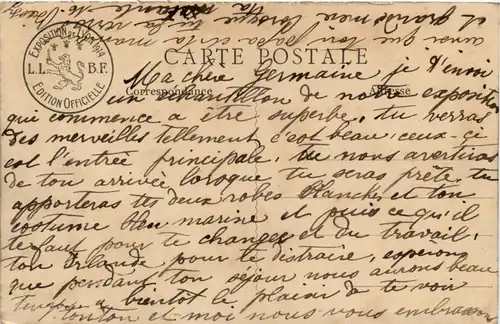 EXPOSITION DE LYON 1914
L.L. B.F.
EDITION OFFICIELLE
CARTE POSTALE
Correspondance Adresse
Ma chère Germaine, je t'envoi
un échantillon de notre exposition
qui commence a être superbe, tu verras
des merveilles tellement c'est beau, ceux-çi
est l'entrée principale, tu nous avertiras
de ton arrivée lorsque tu seras prête, tu
apporteras tes deux robes blanches et ton
costume bleu marine et puis ce qu'il
te faut pour te changer et du travail,
ton Irlande pour te distraire, espérons
que pendant ton séjour nous aurons beau
temps a bientôt le plaisir de te voir
tonton et moi nous vous embrassons